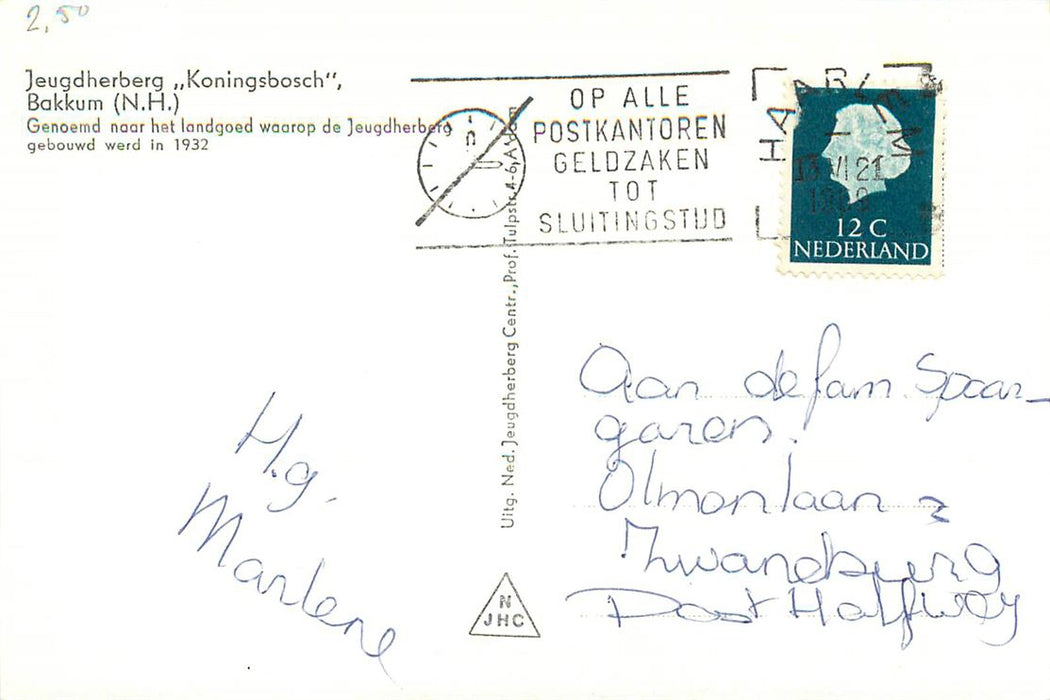 2,50
Jeugdherberg „Koningsbosch",
Bakkum (N.H.)
Genoemd naar het landgoed waarop de Jeugdherberg
gebouwd werd in 1932
OP ALLE
POSTKANTOREN
GELDZAKEN
TOT
SLUITINGSTIJD
HAARLEM
VI 21
12 C
NEDERLAND
Uitg. Ned. Jeugdherberg Centr., Prof. Tulpstr. 4-6, A'dam
Aan de fam Spaar-
garen.
Olmenlaan 2
Zwanenburg
Post Halfweg
H.g.
Marlene
N
JHC